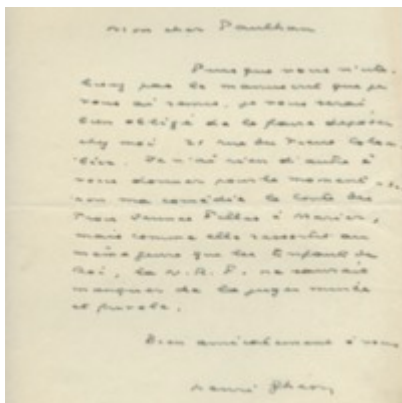 Mon cher Paulhan
Puisque vous n'uti-
lisez pas le manuscrit que je
vous ai remis, je vous serai
bien obligé de le faire déposer
chez moi 21 rue du Vieux Colom-
bier. Je n'ai rien d'autre à
vous donner pour le moment
non ma comédie le Conte des
Trois Jeunes Filles à Marier,
mais comme elle ressortit au
même genre que les Enfants du
Roi, la N.R.F. ne saurait
manquer de la juger
et frivole.
Bien amicalement à vous
Henri Ghéon